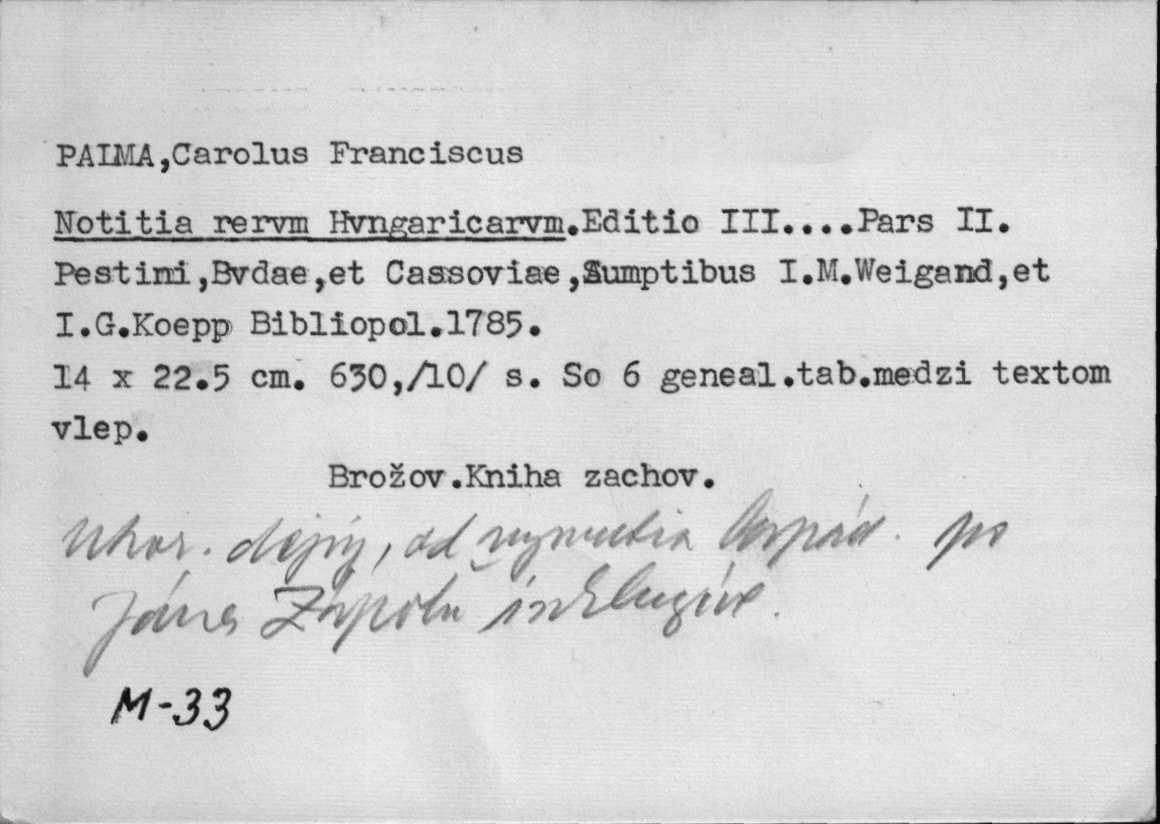 PALMA,Carolus Franciscus
Notitia rervm Hvngaricarvm.Editio III....Pars II.
Pestini,Bvdae,et Cassoviae,Sumptibus I.M.Weigand,et
I.G.Koepp Bibliopol.1785.
14 x 22.5 cm. 630,/10/ s. So 6 geneal.tab.medzi textom
vlep.
Brožov.Kniha zachov.
Uhor. dejiny, od vymretia Arpád. po
Jána Zápolu inkluzíve.
M-33